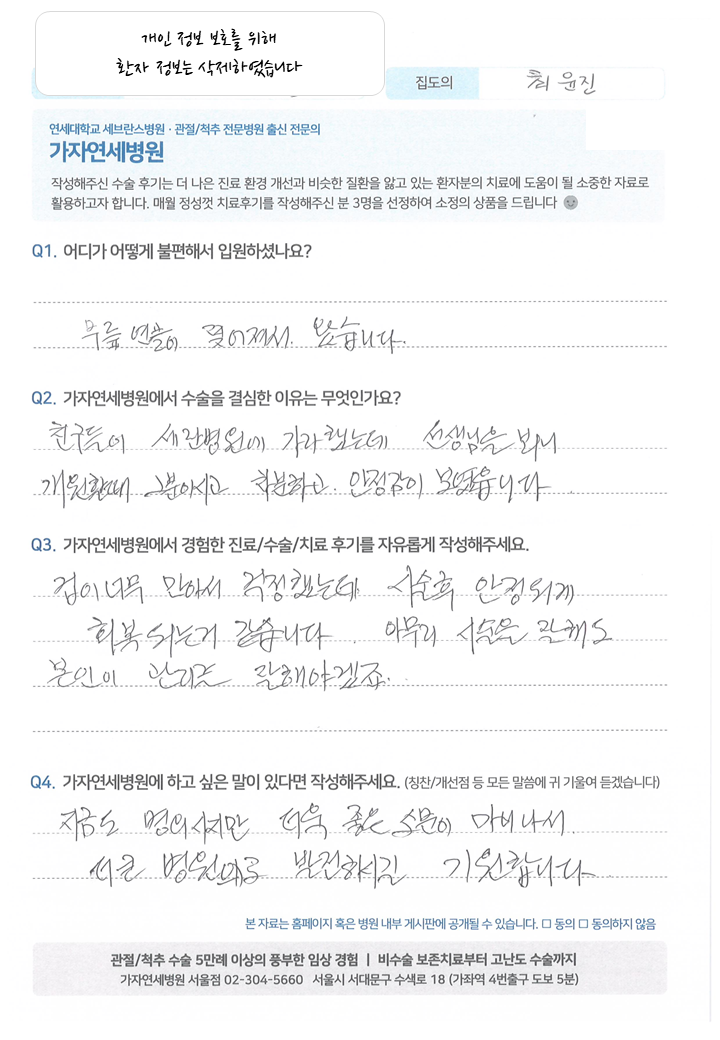 개인 정보 보호를 위해
환자 정보는 삭제하였습니다
집도의 최윤진
연세대학교 세브란스병원 · 관절/척추 전문병원 출신 전문의
가자연세병원
작성해주신 수술 후기는 더 나은 진료 환경 개선과 비슷한 질환을 앓고 있는 환자분의 치료에 도움이 될 소중한 자료로
활용하고자 합니다. 매월 정성껏 치료후기를 작성해주신 분 3명을 선정하여 소정의 상품을 드립니다
Q1. 어디가 어떻게 불편해서 입원하셨나요?
무릎 연골이 찢어져서. 왔습니다.
Q2. 가자연세병원에서 수술을 결심한 이유는 무엇인가요?
친구들이 세란병원에 가라 했는데 선생님을 뵈니
개원할때 그분이시고 차분하고 안정감이 보였습니다
Q3. 가자연세병원에서 경험한 진료/수술/치료 후기를 자유롭게 작성해주세요.
겁이 너무 많아서 걱정했는데 시술후 안정되게
회복 되는거 같습니다. 아무리 시술을 잘해도
본인이 관리를 잘해야겠죠.
Q4. 가자연세병원에 하고 싶은 말이 있다면 작성해주세요. (칭찬/개선점 등 모든 말씀에 귀 기울여 듣겠습니다)
지금도 명의시지만 더욱 좋은 소문이 많이 나서
더 큰 병원으로 발전하시길 기원합니다.
본 자료는 홈페이지 혹은 병원 내부 게시판에 공개될 수 있습니다. □ 동의 □ 동의하지 않음
관절/척추 수술 5만례 이상의 풍부한 임상 경험 | 비수술 보존치료부터 고난도 수술까지
가자연세병원 서울점 02-304-5660 서울시 서대문구 수색로 18 (가좌역 4번출구 도보 5분)